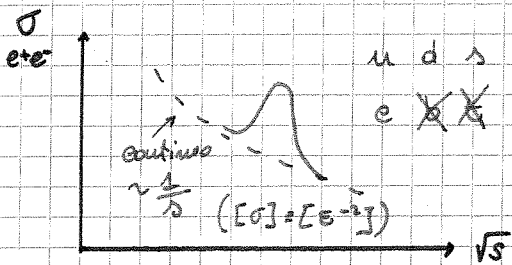 σ
e+e-
u d s
c
continuo
~ 1/s
([σ] = [E⁻²])
√s